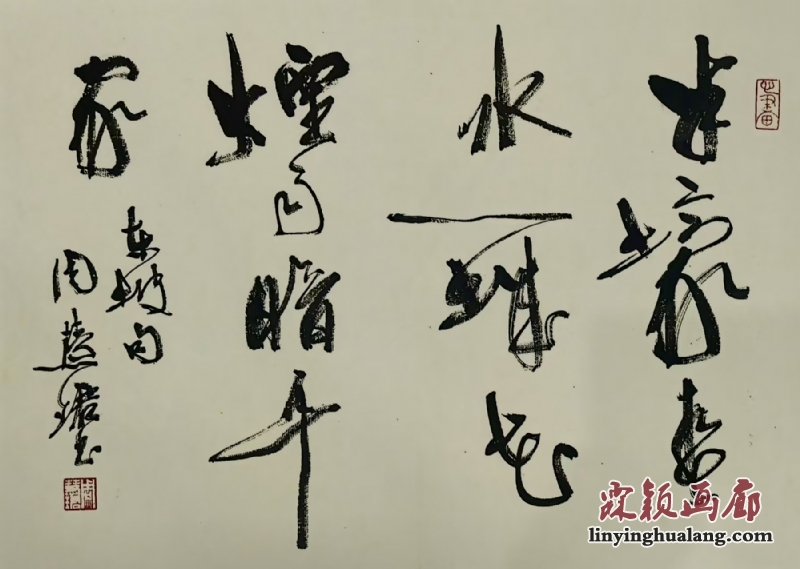 半壕春
水一城花
煙雨暗千
家
東坡句
周慧珺书
霖颖画廊
linyinghualang.com